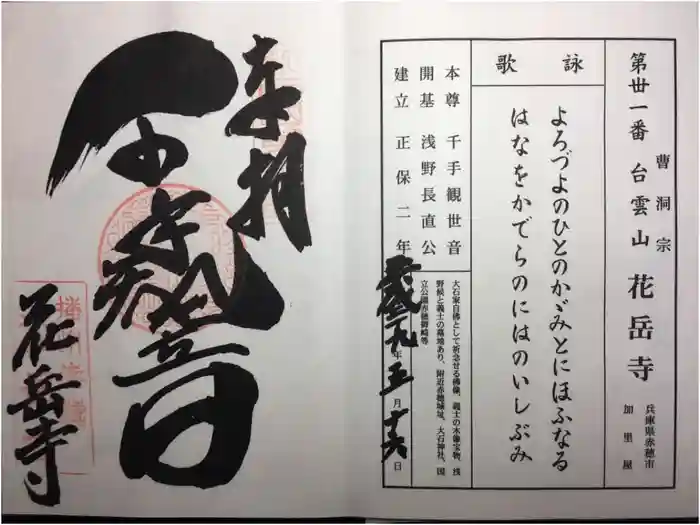 第丗一番 台雲山 花岳寺
曹洞宗
兵庫県赤穂市
加里屋
詠歌
よろづよのひとのかゞみとにほふなる
はなをかでらのにはのいしぶみ
本尊 千手観世音
開基 浅野長直公
建立 正保二年
大石家自佛として祈念せる佛像、義士の木像宝物、浅
野候と義士の墓地あり、附近赤穂城址、大石神社、国
立公園赤穂御崎等
年五月十六日
奉拝
花岳寺